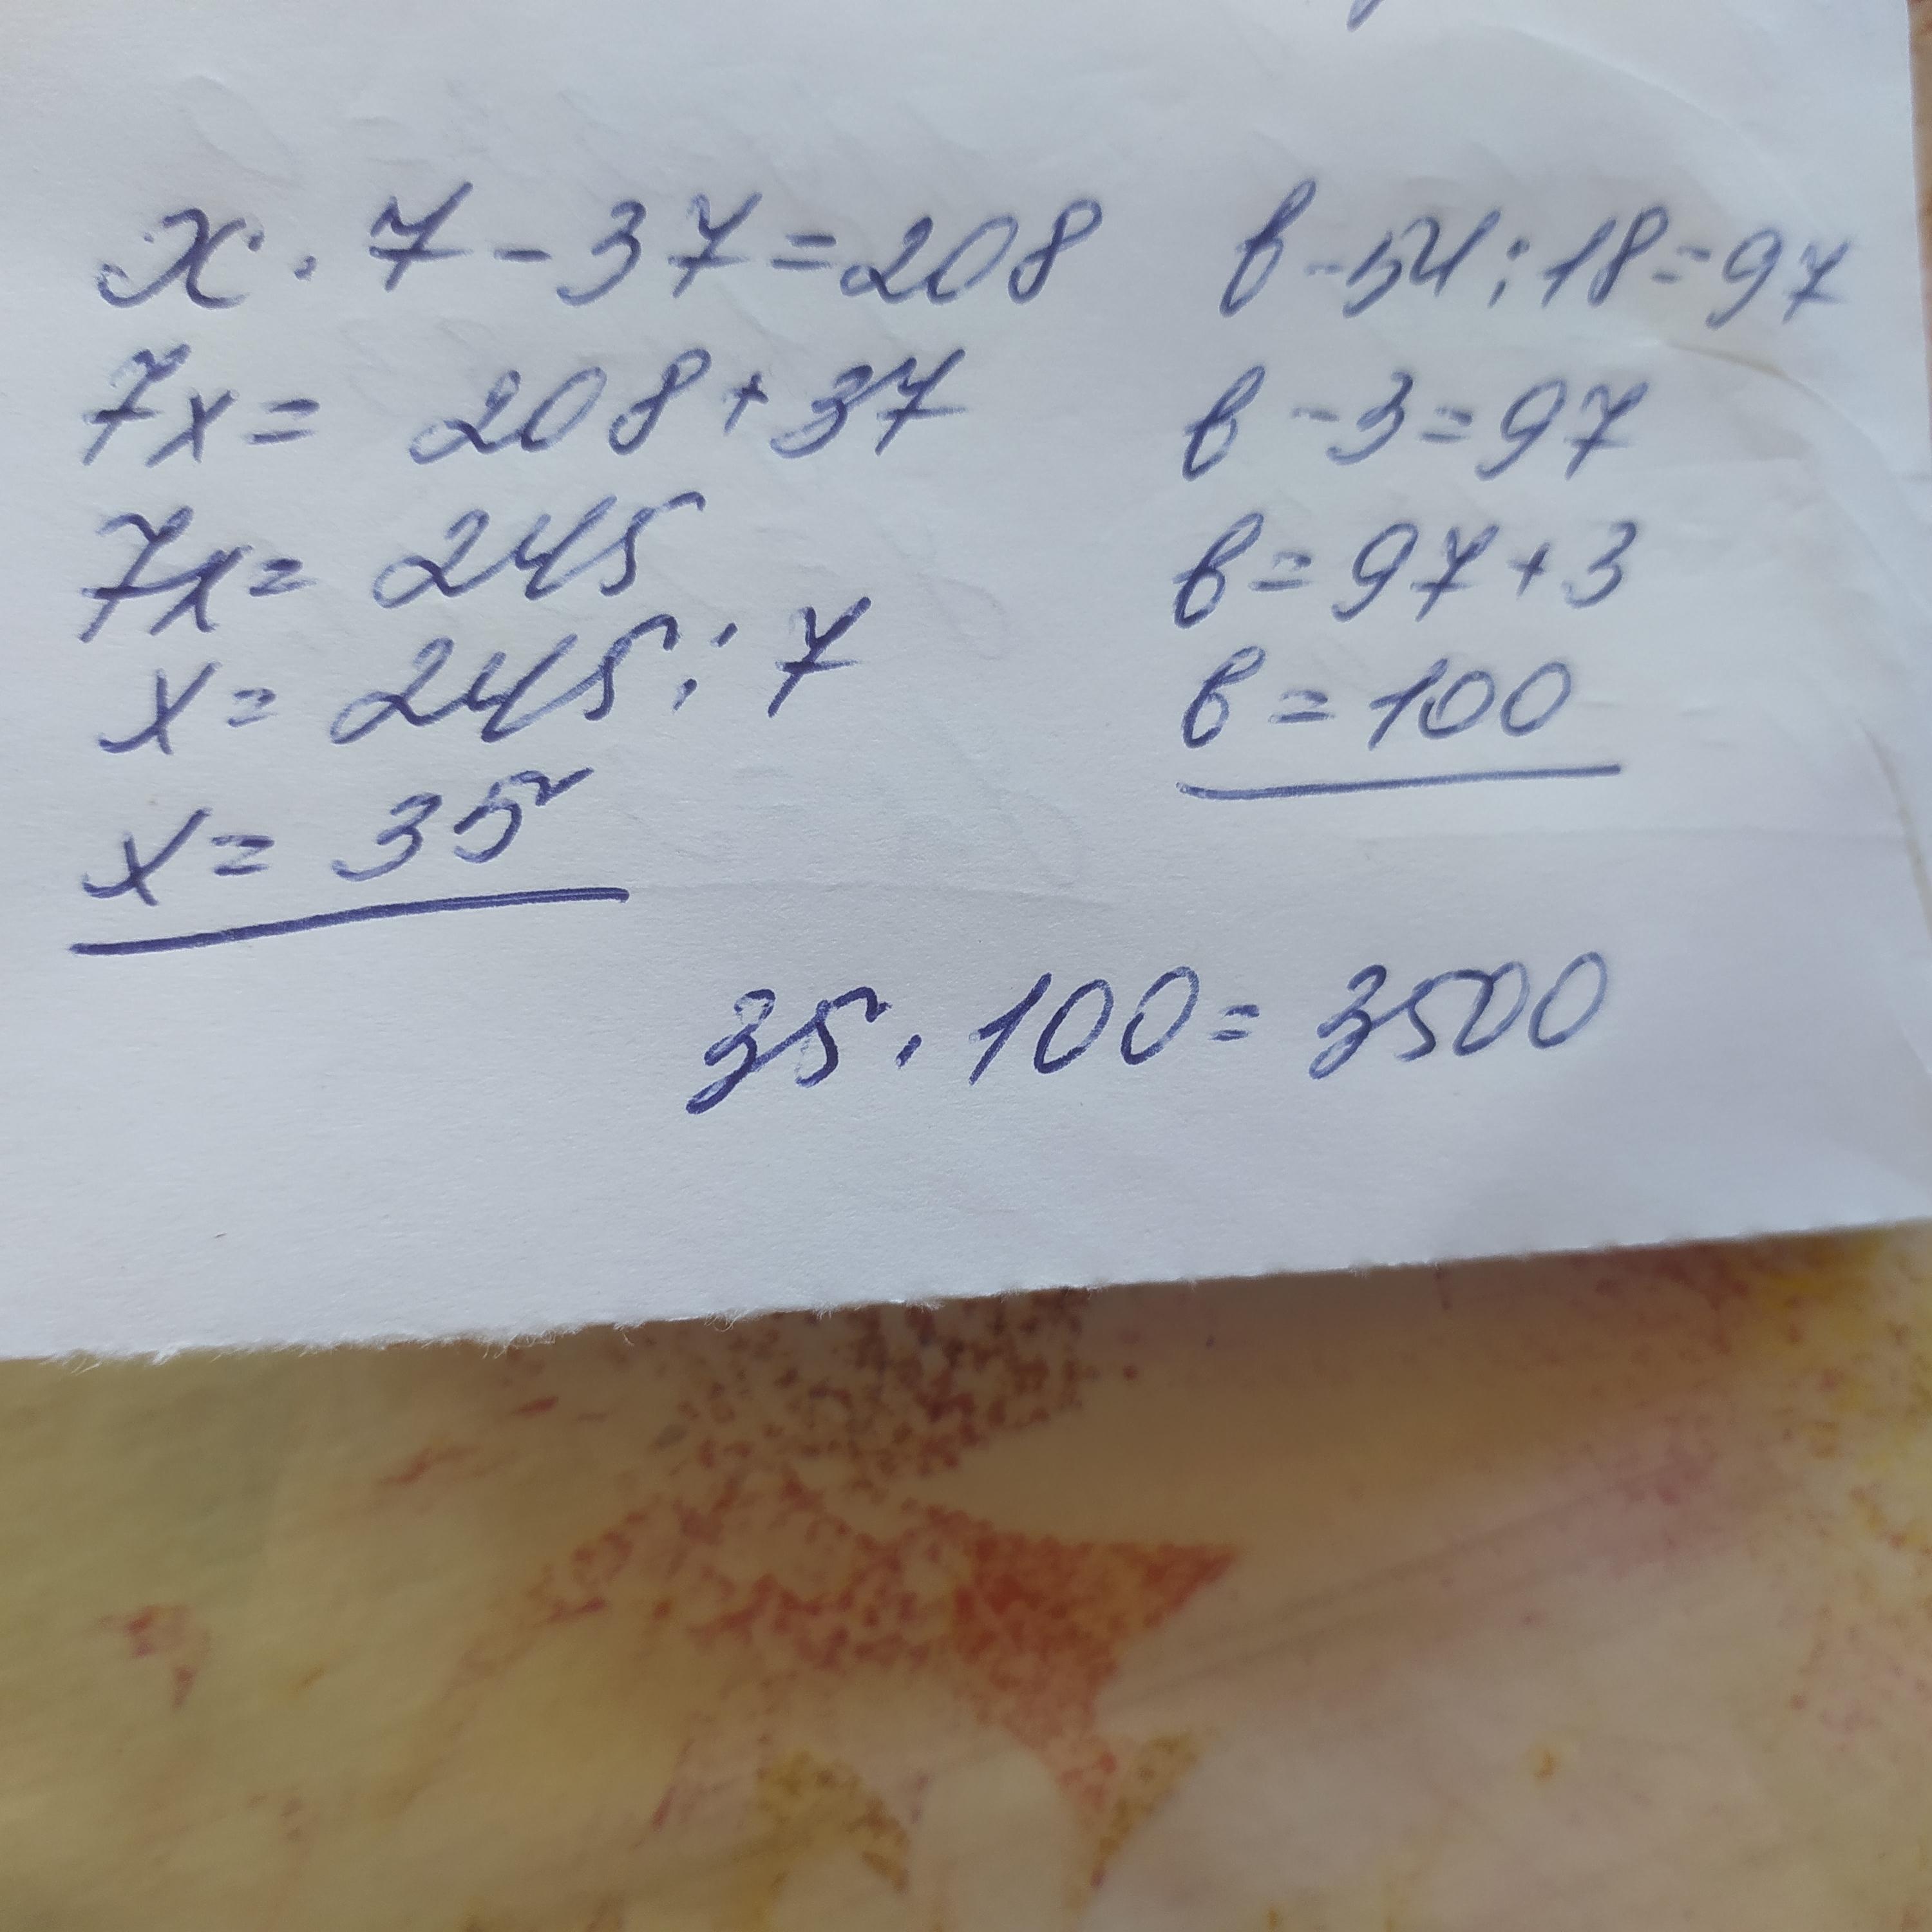 x . 7 - 37 = 208
7x = 208 + 37
7x = 245
x = 245 : 7
x = 35
в - 54 : 18 = 97
в - 3 = 97
в = 97 + 3
в = 100
35 . 100 = 3500